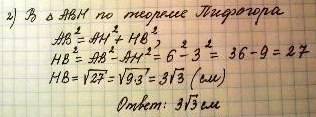 2) В △ ABH по теореме Пифагора
AB² = AH² + HB²,
HB² = AB² - AH² = 6² - 3² = 36 - 9 = 27
HB = √27 = √9·3 = 3√3 (см)
Ответ: 3√3 см